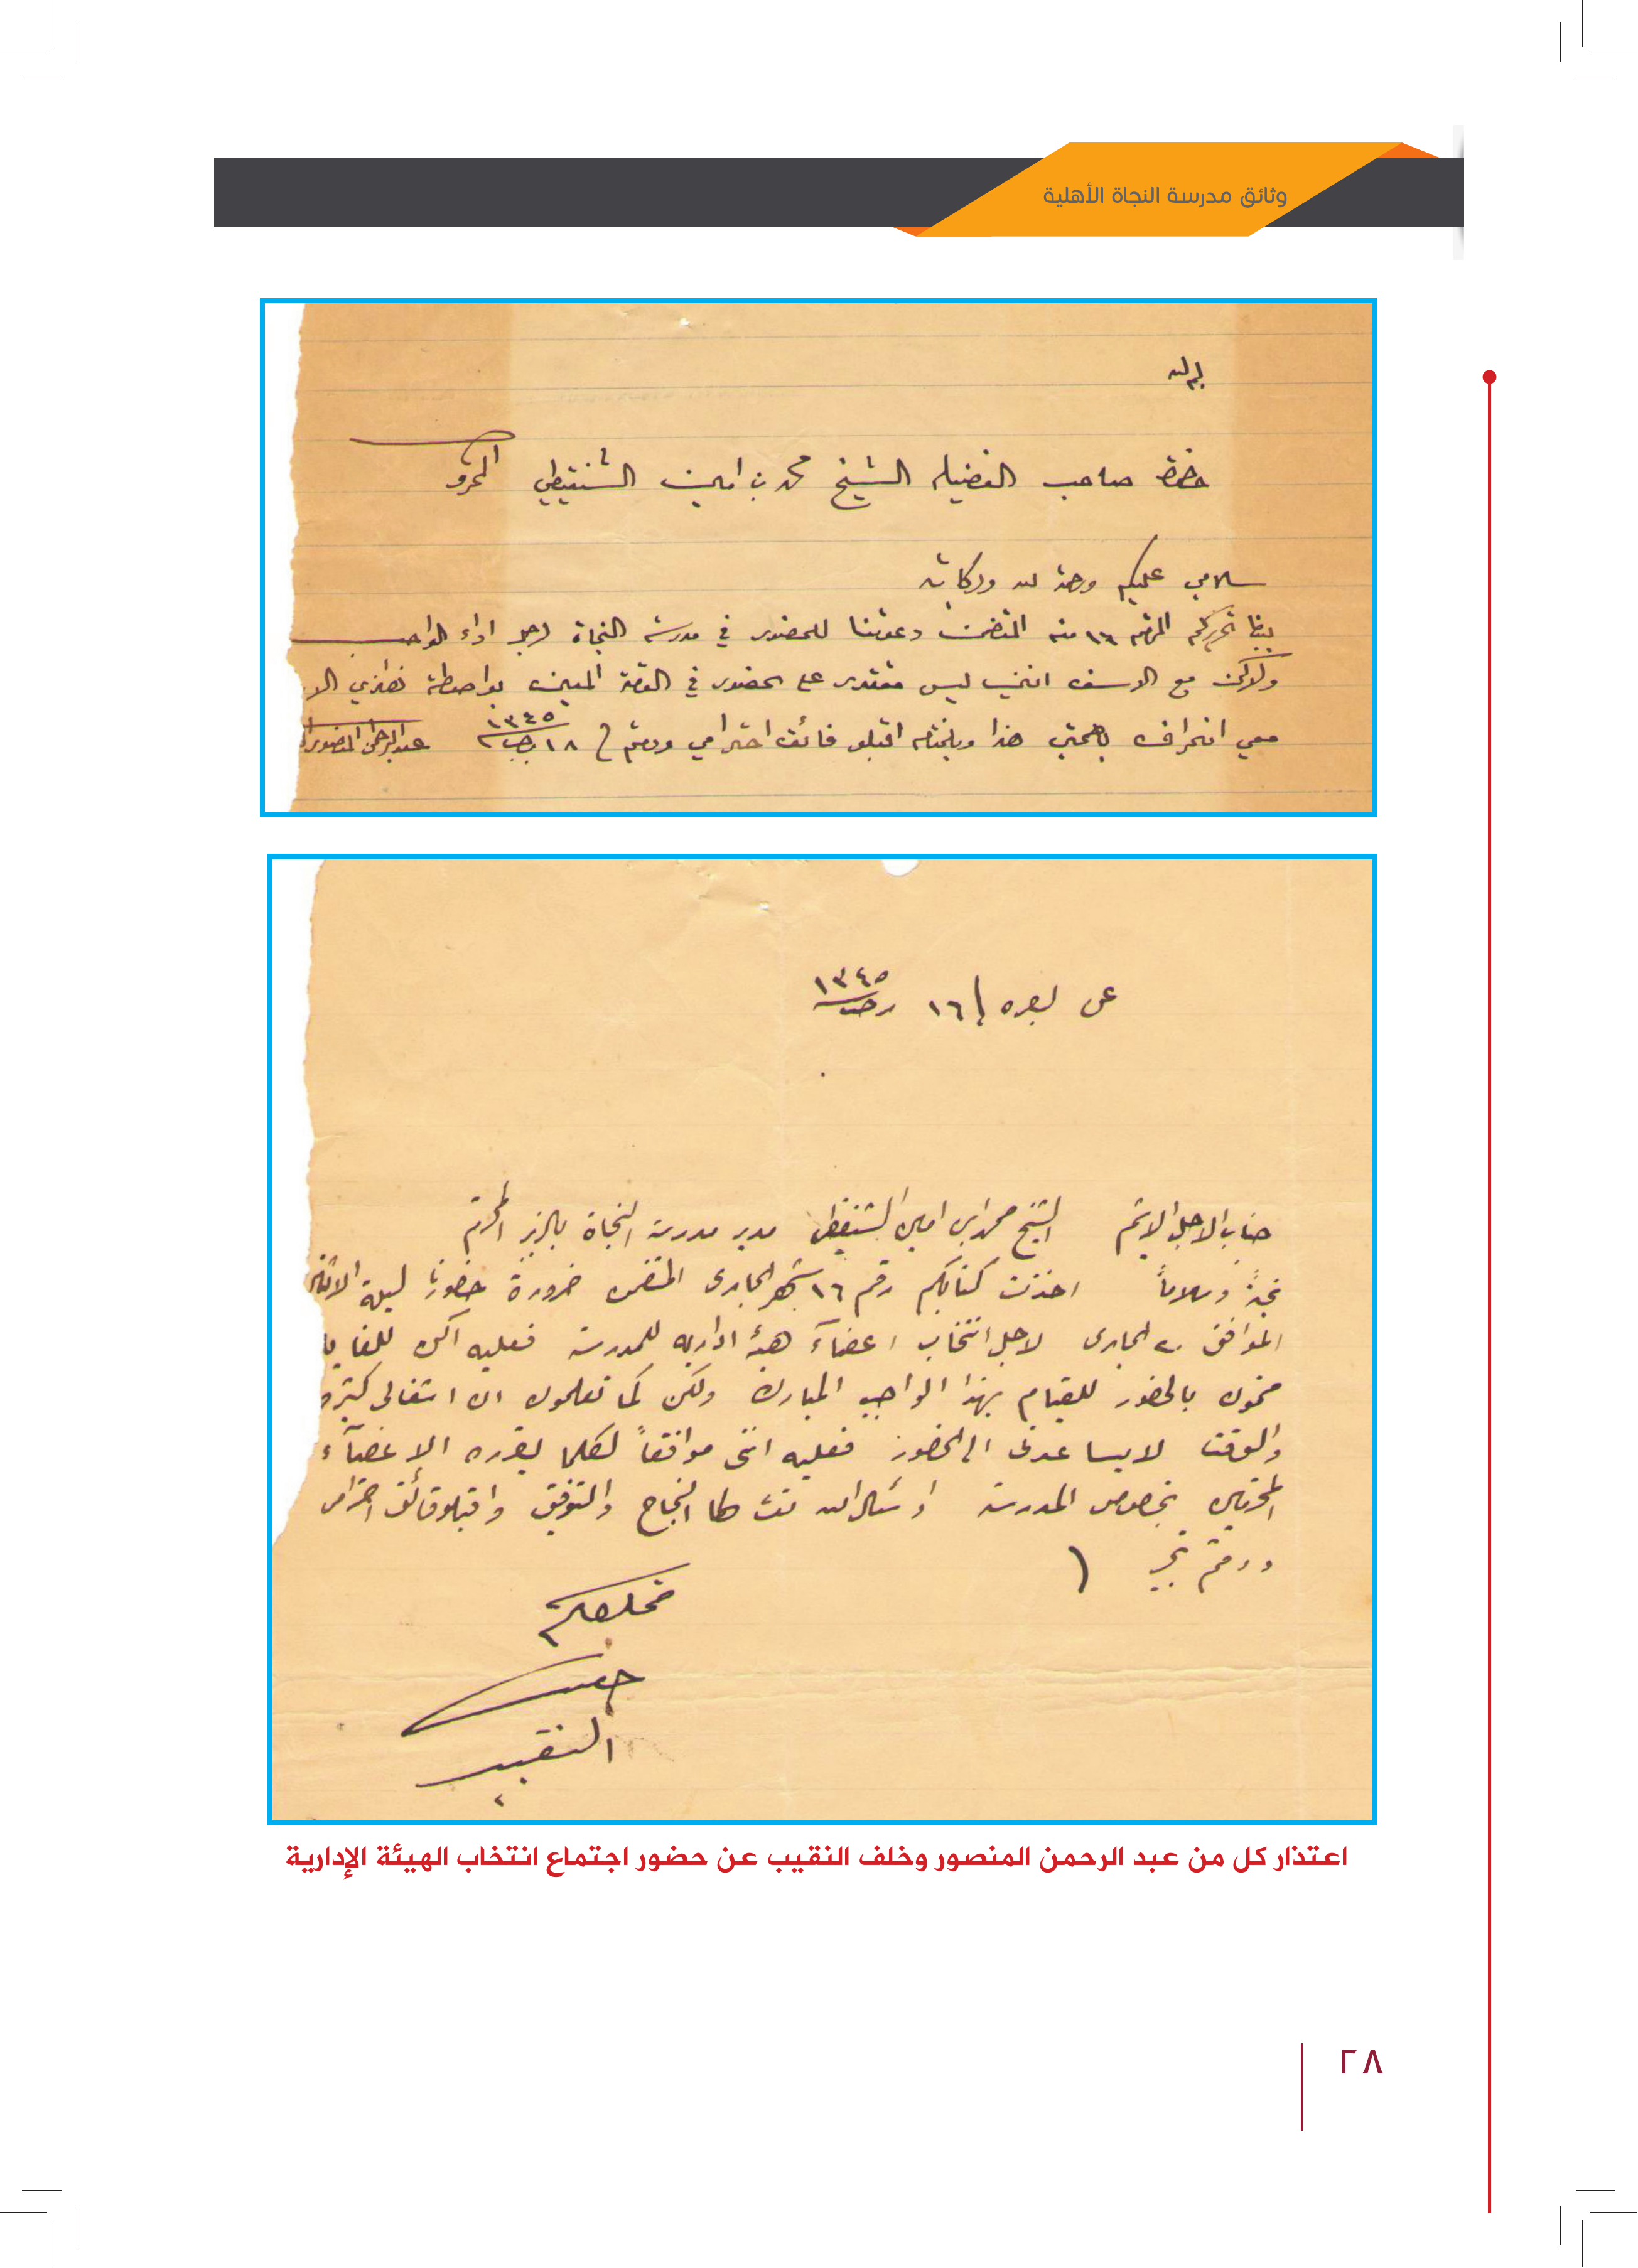 وثائق مدرسة النجاة الأهلية
بم الله
حضرة صاحب الفضيله الشيخ محمد بن امين الشنقيطي المحترم
سلامي عليكم ورحمة الله وبركاته
بيدنا تحريركم المرقم ١٦ منه المتضمن دعوتنا للحضور في مدرسة النجاة لاجل اداء الواجب
ولاكن مع الاسف انني ليس مقتدر على الحضور في الوقت المعين بواصطة
معي انحراف بصحتي هذا وبالختام اقبلو فائق احترامي ودمتم ١٨ رجب ١٣٤٥ عبدالرحمن المنصور
عن بصره ١٦ رجب ١٣٤٥
جناب الاجل الاشيم الشيخ محمد ابن امين الشنقيطي مدير مدرسة النجاة بالزبير المحترم
تحية وسلاماً اخذت كتابكم رقم ١٦ شهر الجارى المتضمن ضرورة حضورنا ليلة الاثنين
الموافق ٢٠ الجارى لاجل انتخاب اعضآء هيئة اداريه للمدرسة فعليه اكن للغايه
ممنون بالحضور للقيام بهذا الواجب المبارك ولكن كما تعلمون ان اشغالى كثيره
والوقت لايساعدنى الى الحضور فعليه اننى موافقاً لكلما يقرره الاعضآء
المحترمين بخصوص المدرسة اسئال الله لها النجاح والتوفيق واقبلو فائق احترامى
ودمتم
مخلصكم
خلف
النقيب
اعتذار كل من عبد الرحمن المنصور وخلف النقيب عن حضور اجتماع انتخاب الهيئة الإدارية
٢٨